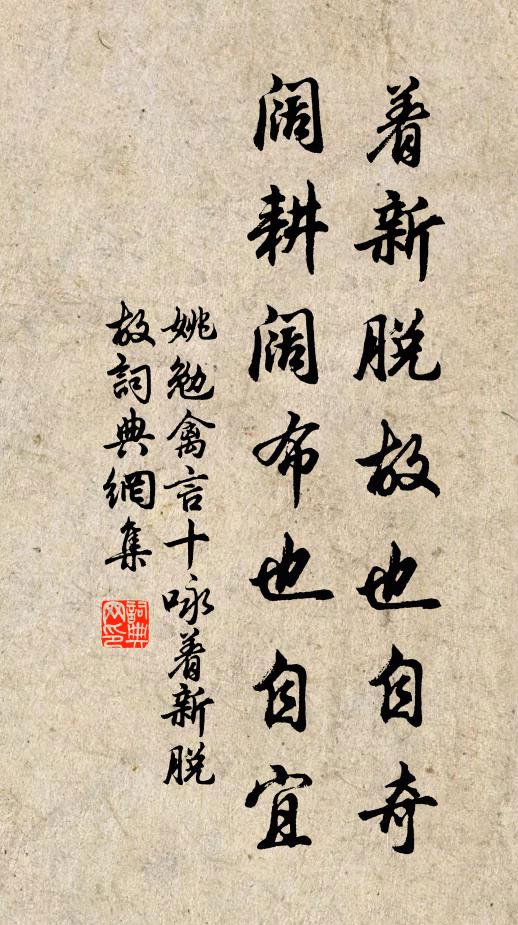 着新脱故也自奇
阔耕阔布也自宜
姚勉禽言十咏着新脱
故詞典網集
詞典网印